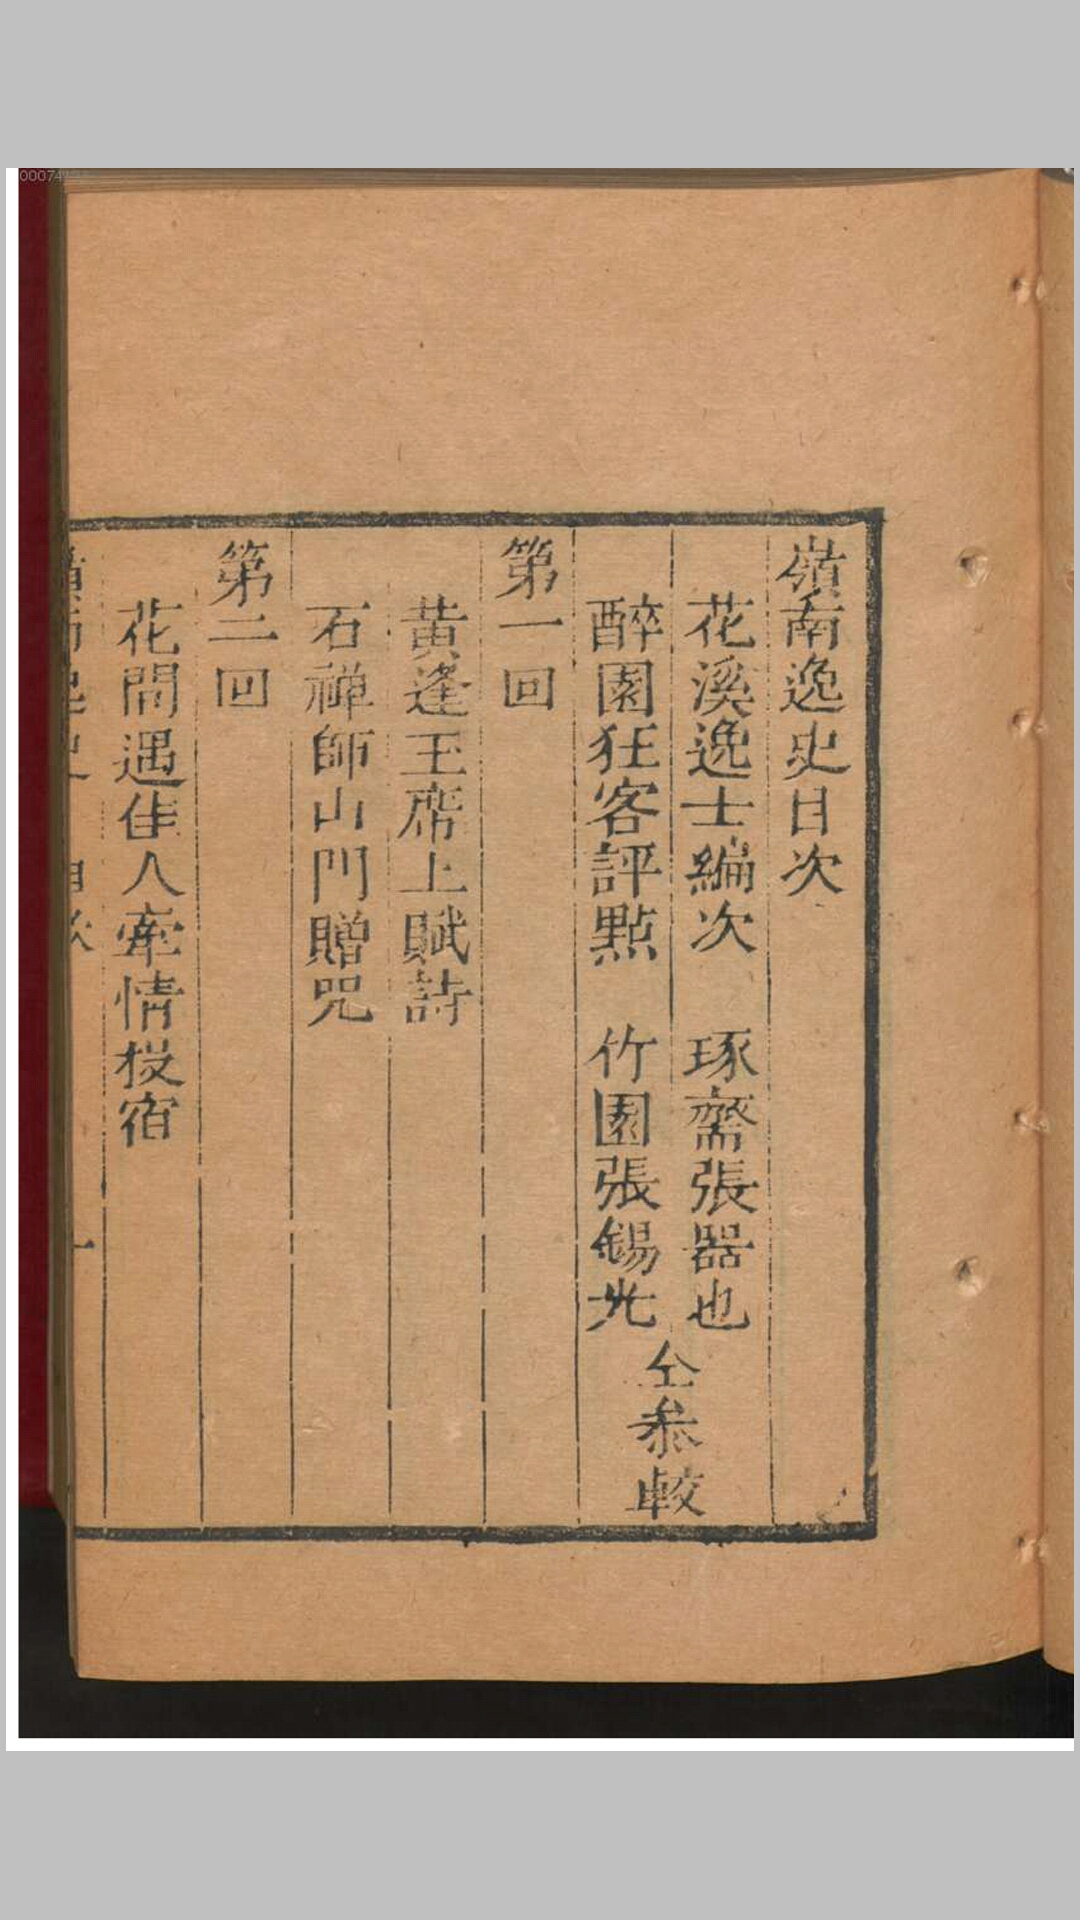 嶺南逸史目次
花溪逸士編次 琢齋張器也
醉園狂客評點 竹園張錫光
仝叅較
第一回
黃逢玉席上賦詩
石禪師山門贈咒
第二回
花間遇佳人牽情投宿
嶺南逸史 目次 一